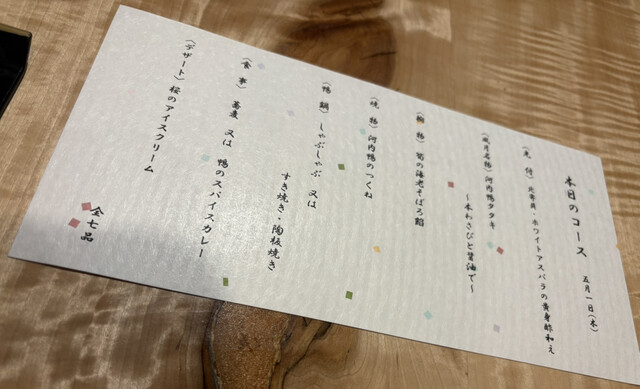 本日のコース 五月一日(木)
(先付)北寄貝・ホワイトアスパラの黄身酢和え
河内鴨タタキ
〜本わさびと醤油で〜
筍の海老そぼろ餡
(焼物)河内鴨のつくね
(鴨鍋)しゃぶしゃぶ 又は
すき焼き・陶板焼き
(食事)蕎麦 又は 鴨のスパイスカレー
(デザート)桜のアイスクリーム
全七品